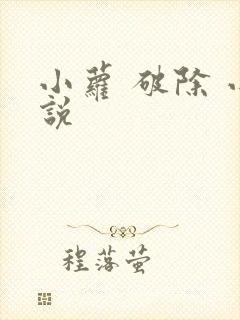 小蘿 破除 小
說
程落萤